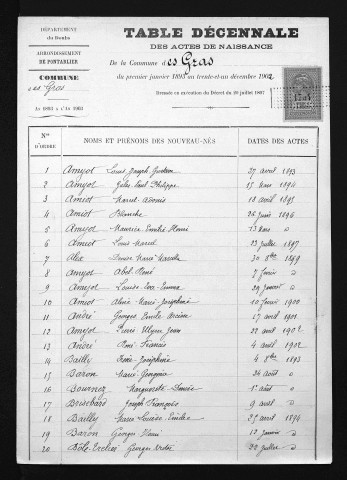 DÉPARTEMENT
du Doubs
ARRONDISSEMENT
DE PONTARLIER
COMMUNE
es Gras
An 1893 à l'An 1903
TABLE DÉCENNALE
DES ACTES DE NAISSANCE
De la Commune des Gras
du premier janvier 1893 au trente-et-un décembre 1902
Dressée en exécution du Décret du 20 juillet 1807
Nos D'ORDRE NOMS ET PRÉNOMS DES NOUVEAU-NÉS DATES DES ACTES
1 Amyot Louis Joseph 27 avril 1893
2 Amyot Jules Paul Philippe 15 mars 1894
3 Amiot Marcel 18 avril 1895
4 Amiot Blanche 26 juin 1896
5 Amyot Maurice Emile Henri 13 mars d
6 Amiot Louis Marcel 23 juillet 1897
7 Alix Marie 30 8bre 1899
8 Amyot Abel René 7 février d
9 Amyot Louise Eva Emma 29 janvier d
10 Amiot Aline Marie Joséphine 10 février 1900
11 André Georges Emile 17 avril 1901
12 Amyot Pierre Ulysse Jean 22 avril 1902
13 André René Francis 4 avril 1902
14 Baille Marie Joséphine 4 8bre 1893
15 Baron Marie 24 août d
16 Bournez Marguerite 1er août d
17 Brischard Joseph François 9 avril d
18 Bailly Marie Louise Emilie 25 avril 1894
19 Baron Georges Henri 12 janvier d
20 Bôle Georges 22 juillet d